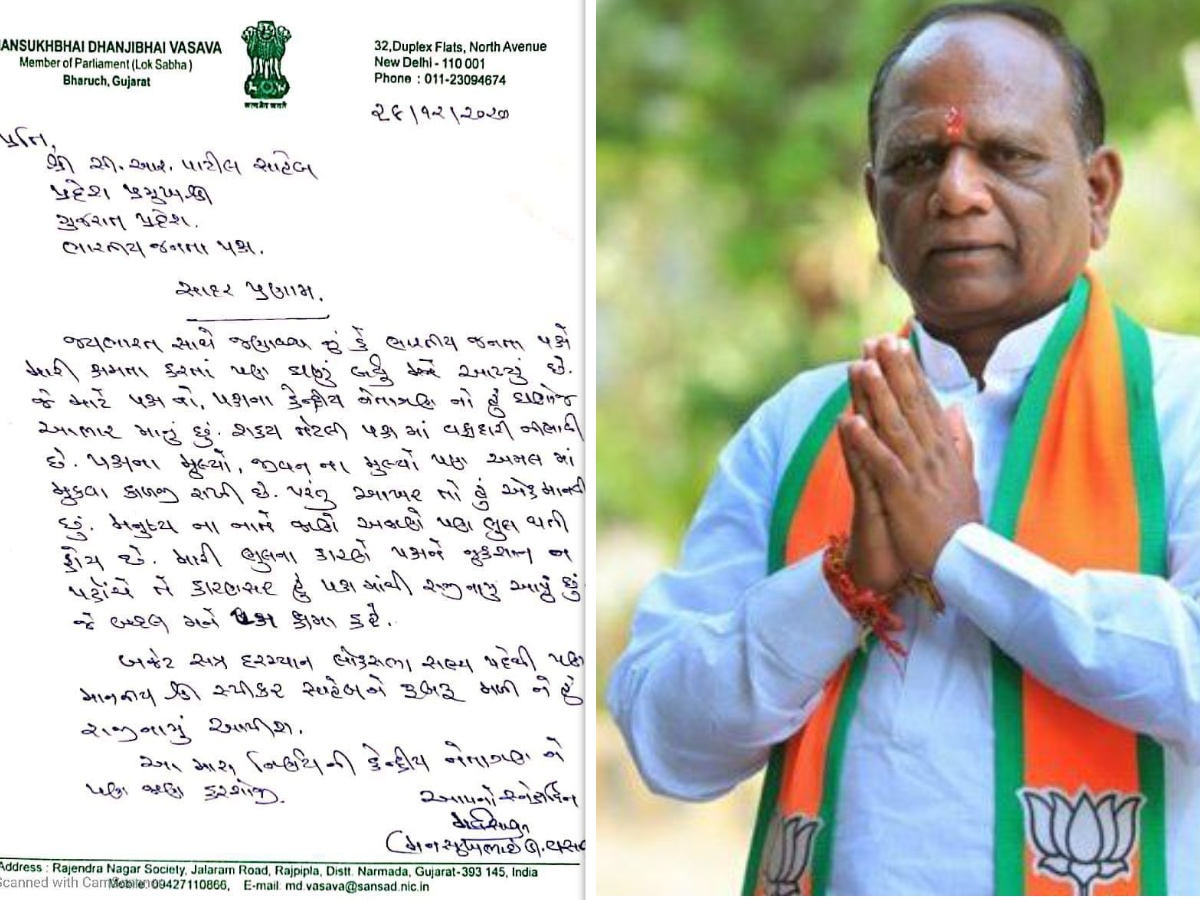 ANSUKHBHAI DHANJIBHAI VASAVA
Member of Parliament (Lok Sabha)
Bharuch, Gujarat
सत्यमेव जयते
32,Duplex Flats, North Avenue
New Delhi - 110 001
Phone : 011-23094674
૨૮/૧૨/૨૦૨૦
પ્રતિ,
શ્રી સી.આર. પાટીલ સાહેબ
પ્રદેશ પ્રમુખશ્રી
ગુજરાત પ્રદેશ.
ભારતીય જનતા પક્ષ.
સાદર પ્રણામ.
જયભારત સાથે જણાવવાનું કે ભારતીય જનતા પક્ષે
મારી ક્ષમતા કરતાં પણ ઘણું બધું મને આપ્યું છે.
જે માટે પક્ષ નો, પક્ષના કેન્દ્રીય નેતાગણ નો હું ઘણોજ
આભાર માનું છું. શક્ય એટલી પક્ષ માં વફાદારી નીભાવી
છે. પક્ષના મુલ્યો, જીવન ના મુલ્યો પણ અમલ માં
મુકવા કાળજી રાખી છે. પરંતુ આખર તો હું એક માનવી
છું. મનુષ્ય ના નાતે જાણે અજાણે પણ ભુલ થતી
હોય છે. મારી ભુલના કારણે પક્ષને નુકશાન ન
પહોંચે તે કારણસર હું પક્ષ માંથી રાજીનામું આપું છું
જે બદલ મને પક્ષ ક્ષમા કરે.
બજેટ સત્ર દરમ્યાન લોકસભા સભ્ય પદેથી પણ
માનનીય શ્રી સ્પીકર સાહેબને રૂબરૂ મળી ને હું
રાજીનામું આપીશ.
આ મારા નિર્ણયની કેન્દ્રીય નેતાગણ ને
પણ જાણ કરશોજી.
આપનો સ્નેહાધિન
(મનસુખભાઈ ડી. વસાવ
Address : Rajendra Nagar Society, Jalaram Road, Rajpipla, Distt. Narmada, Gujarat-393 145, India
Scanned with Cam
Mobile 09427110866, E-mail: md.vasava@sansad.nic.in